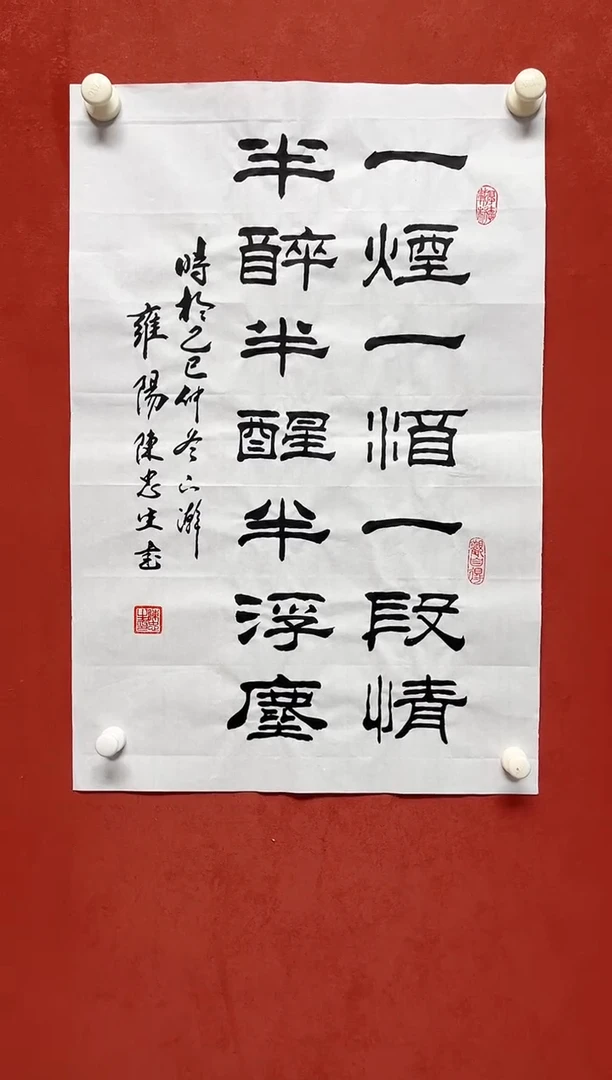 一煙一酒一段情
半醉半醒半浮塵
時於乙巳仲冬下澣
雍陽陳忠生書
觀自得